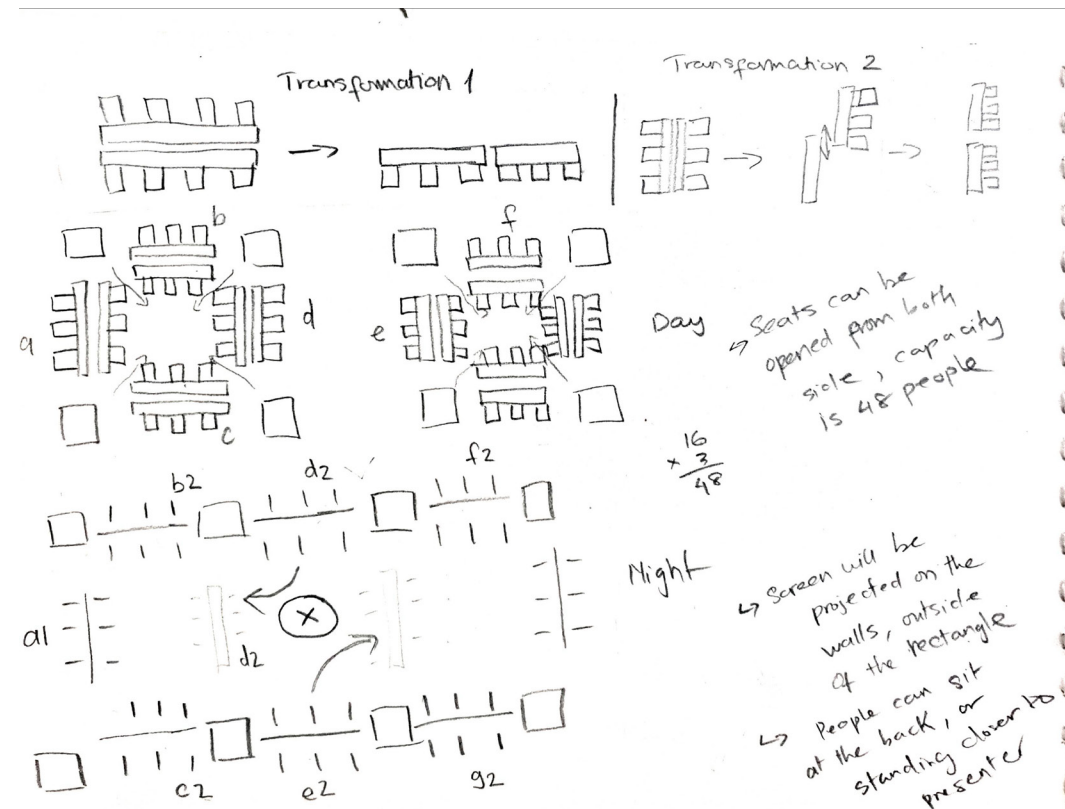 Transformation 1
Transformation 2
b
f
a
d
e
c
Day
↳ Seats can be
opened from both
side, capacity
is 48 people
16
× 3
48
b2
d2
f2
Night
↳ Screen will be
projected on the
walls, outside
of the rectangle
a1
d2
X
↳ People can sit
at the back, or
standing closer to
presenter
c2
e2
g2